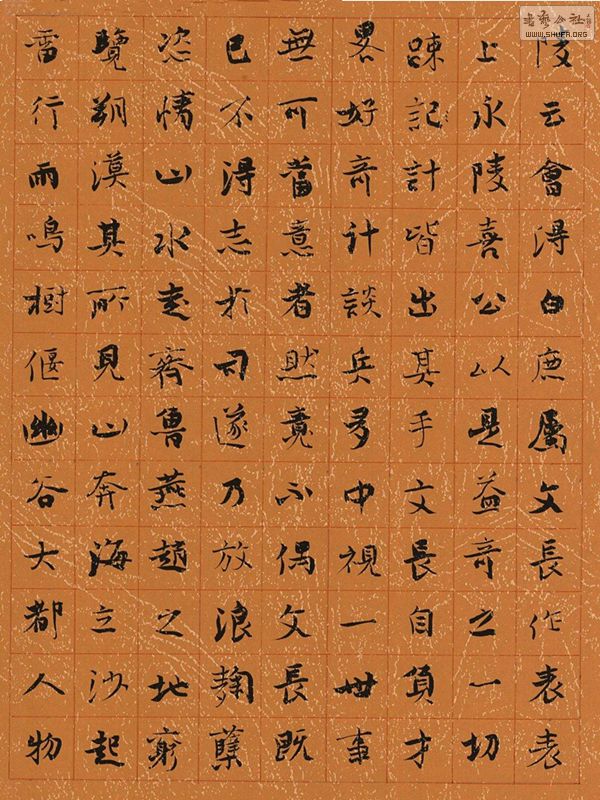 陵云會得白鹿屬文長作表表
上永陵喜公以是益奇之一切
踈記計皆出其手文長自負才
畧好奇計談兵多中視一世事
無可當意者然竟不偶文長既
已不得志於司遂乃放浪麴蘖
恣情山水走齊魯燕趙之地窮
覽朔漠其所見山奔海立沙起
雷行雨鳴樹偃幽谷大都人物
書藝公社
WWW.SHUFA.ORG